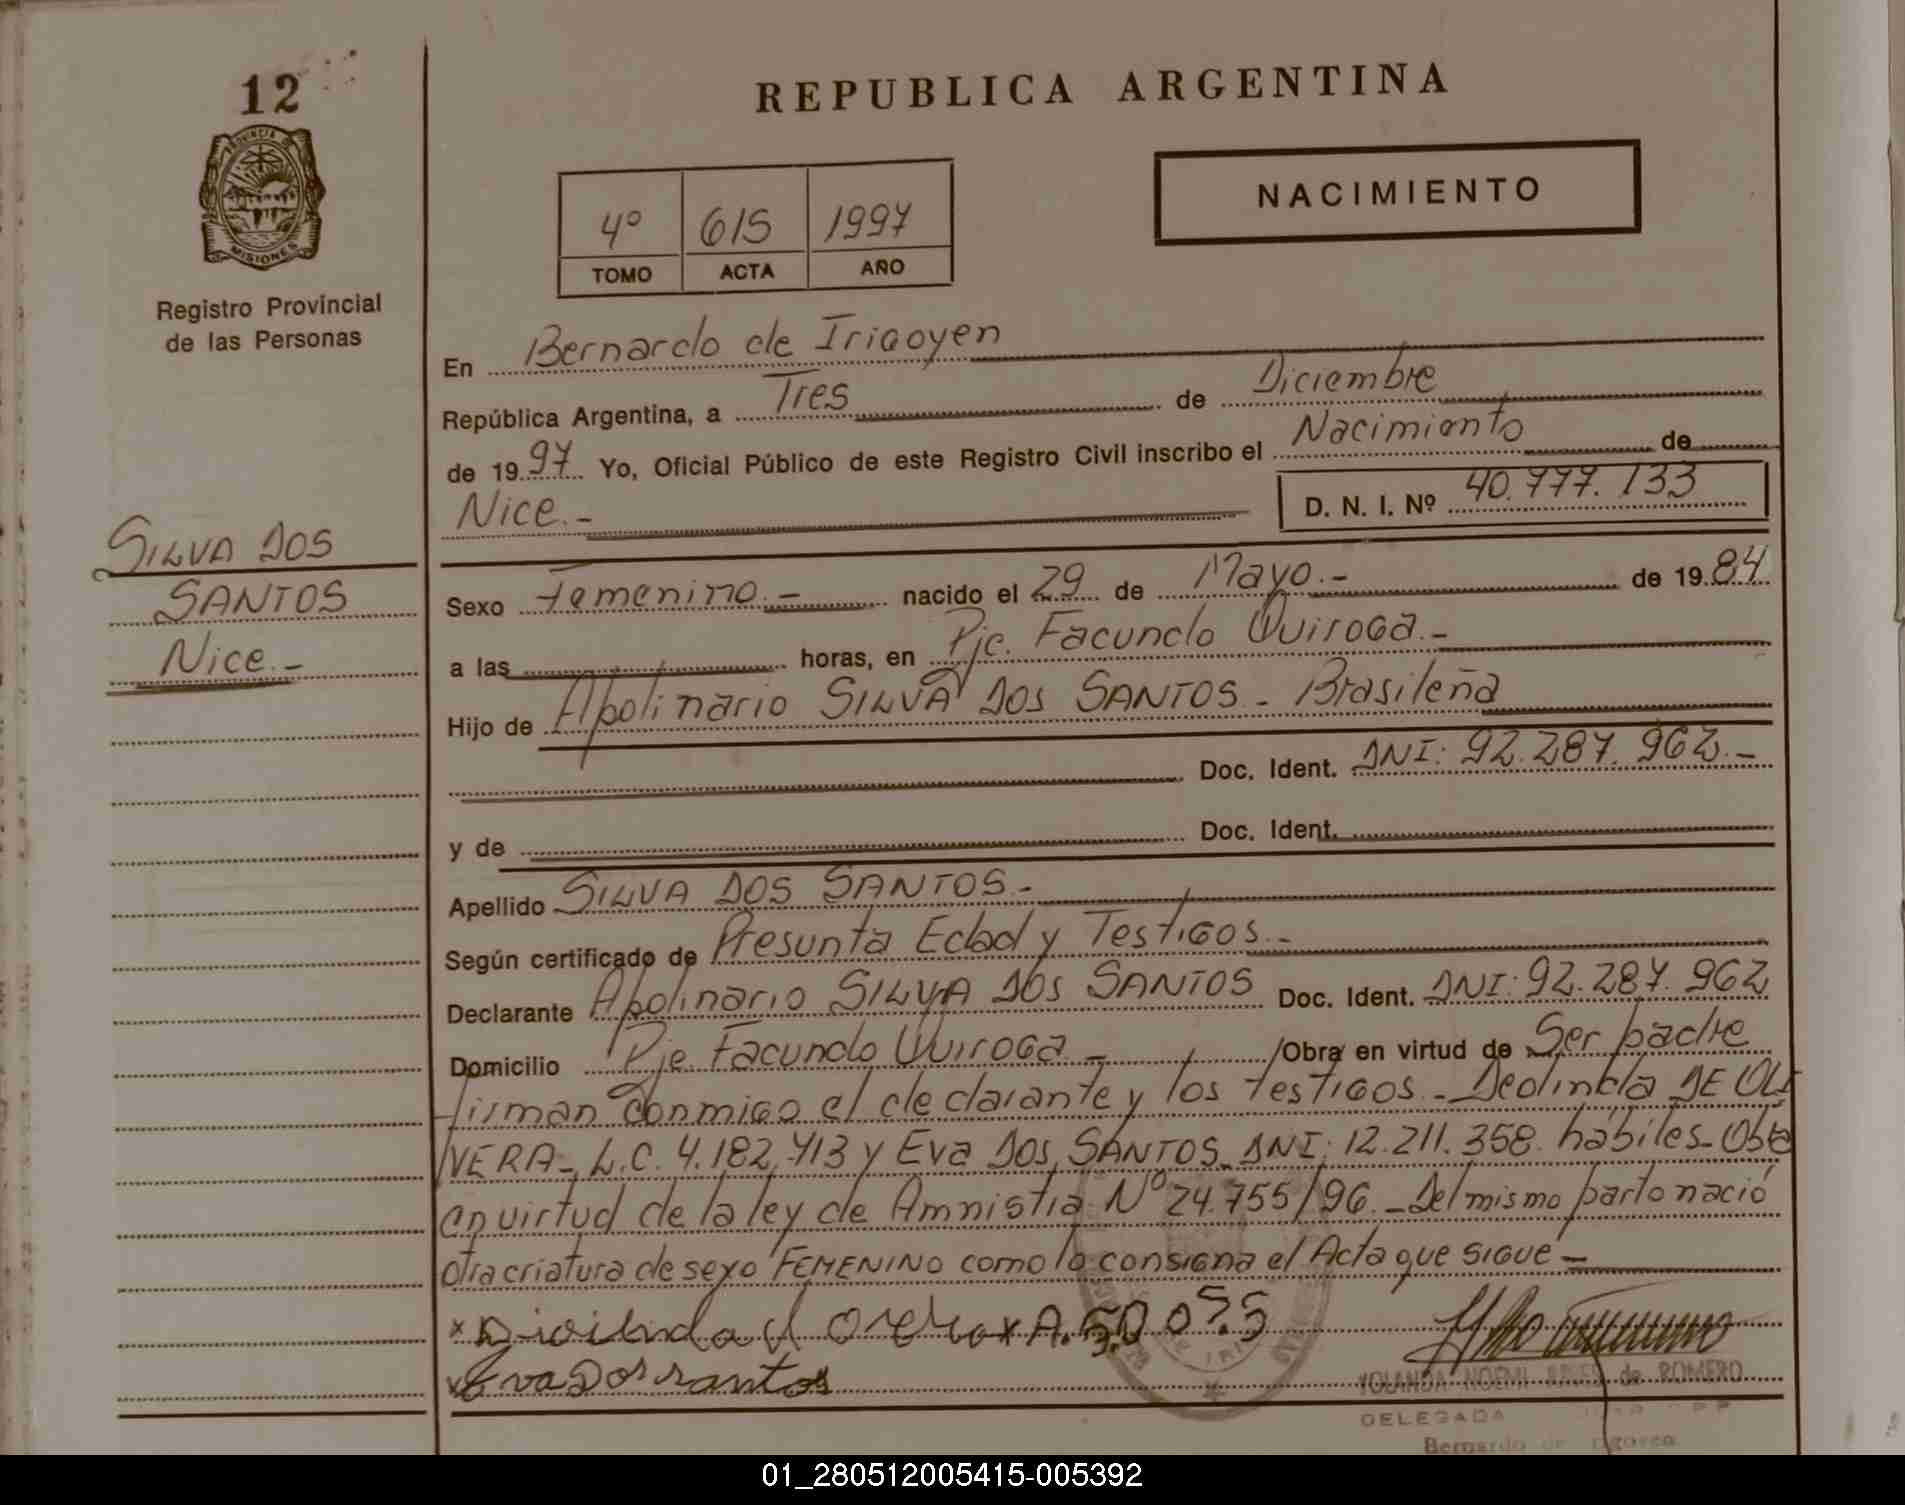 12
PROVINCIA DE
MISIONES
Registro Provincial
de las Personas
SILVA DOS
SANTOS
Nice.-
REPUBLICA ARGENTINA
4º 615 1997
TOMO ACTA AÑO
NACIMIENTO
En Bernardo de Irigoyen
República Argentina, a Tres de Diciembre
de 1997 Yo, Oficial Público de este Registro Civil inscribo el Nacimiento de
Nice.- D. N. I. Nº 40.777.133
Sexo Femenino.- nacido el 29 de Mayo.- de 1984
a las horas, en Pje. Facundo Quiroga.-
Hijo de Apolinario SILVA DOS SANTOS - Brasileña
Doc. Ident. DNI: 92.287.962.-
y de Doc. Ident.
Apellido SILVA DOS SANTOS.-
Según certificado de Presunta Edad y Testigos.-
Declarante Apolinario SILVA DOS SANTOS Doc. Ident. DNI: 92.287.962
Domicilio Pje. Facundo Quiroga - /Obra en virtud de Ser padre
firman conmigo el declarante y los testigos - Deolinda DE OLI
VERA - L.C. 4.182.713 y Eva DOS SANTOS - DNI: 12.211.358. hábiles - Obra
en virtud de la ley de Amnistia Nº 24.755/96.- Del mismo parto nació
otra criatura de sexo FEMENINO como lo consigna el Acta que sigue -
x A.
x Eva Dos santos
YOLANDA NOEMI de ROMERO
DELEGADA
Bernardo de Irigoyen
01_280512005415-005392